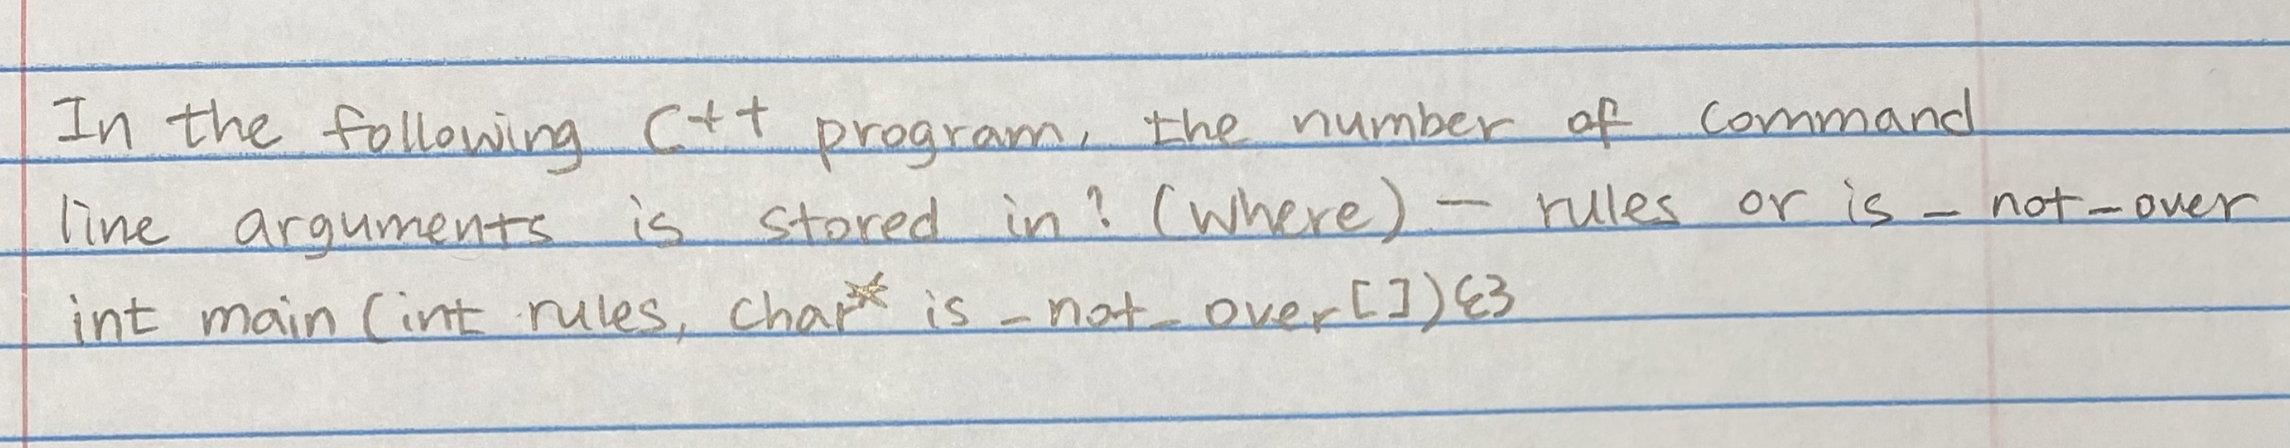 In the following C++ program, the number of command
line arguments is stored in? (where) — rules or is_not_over
int main (int rules, char* is_not_over[]){}